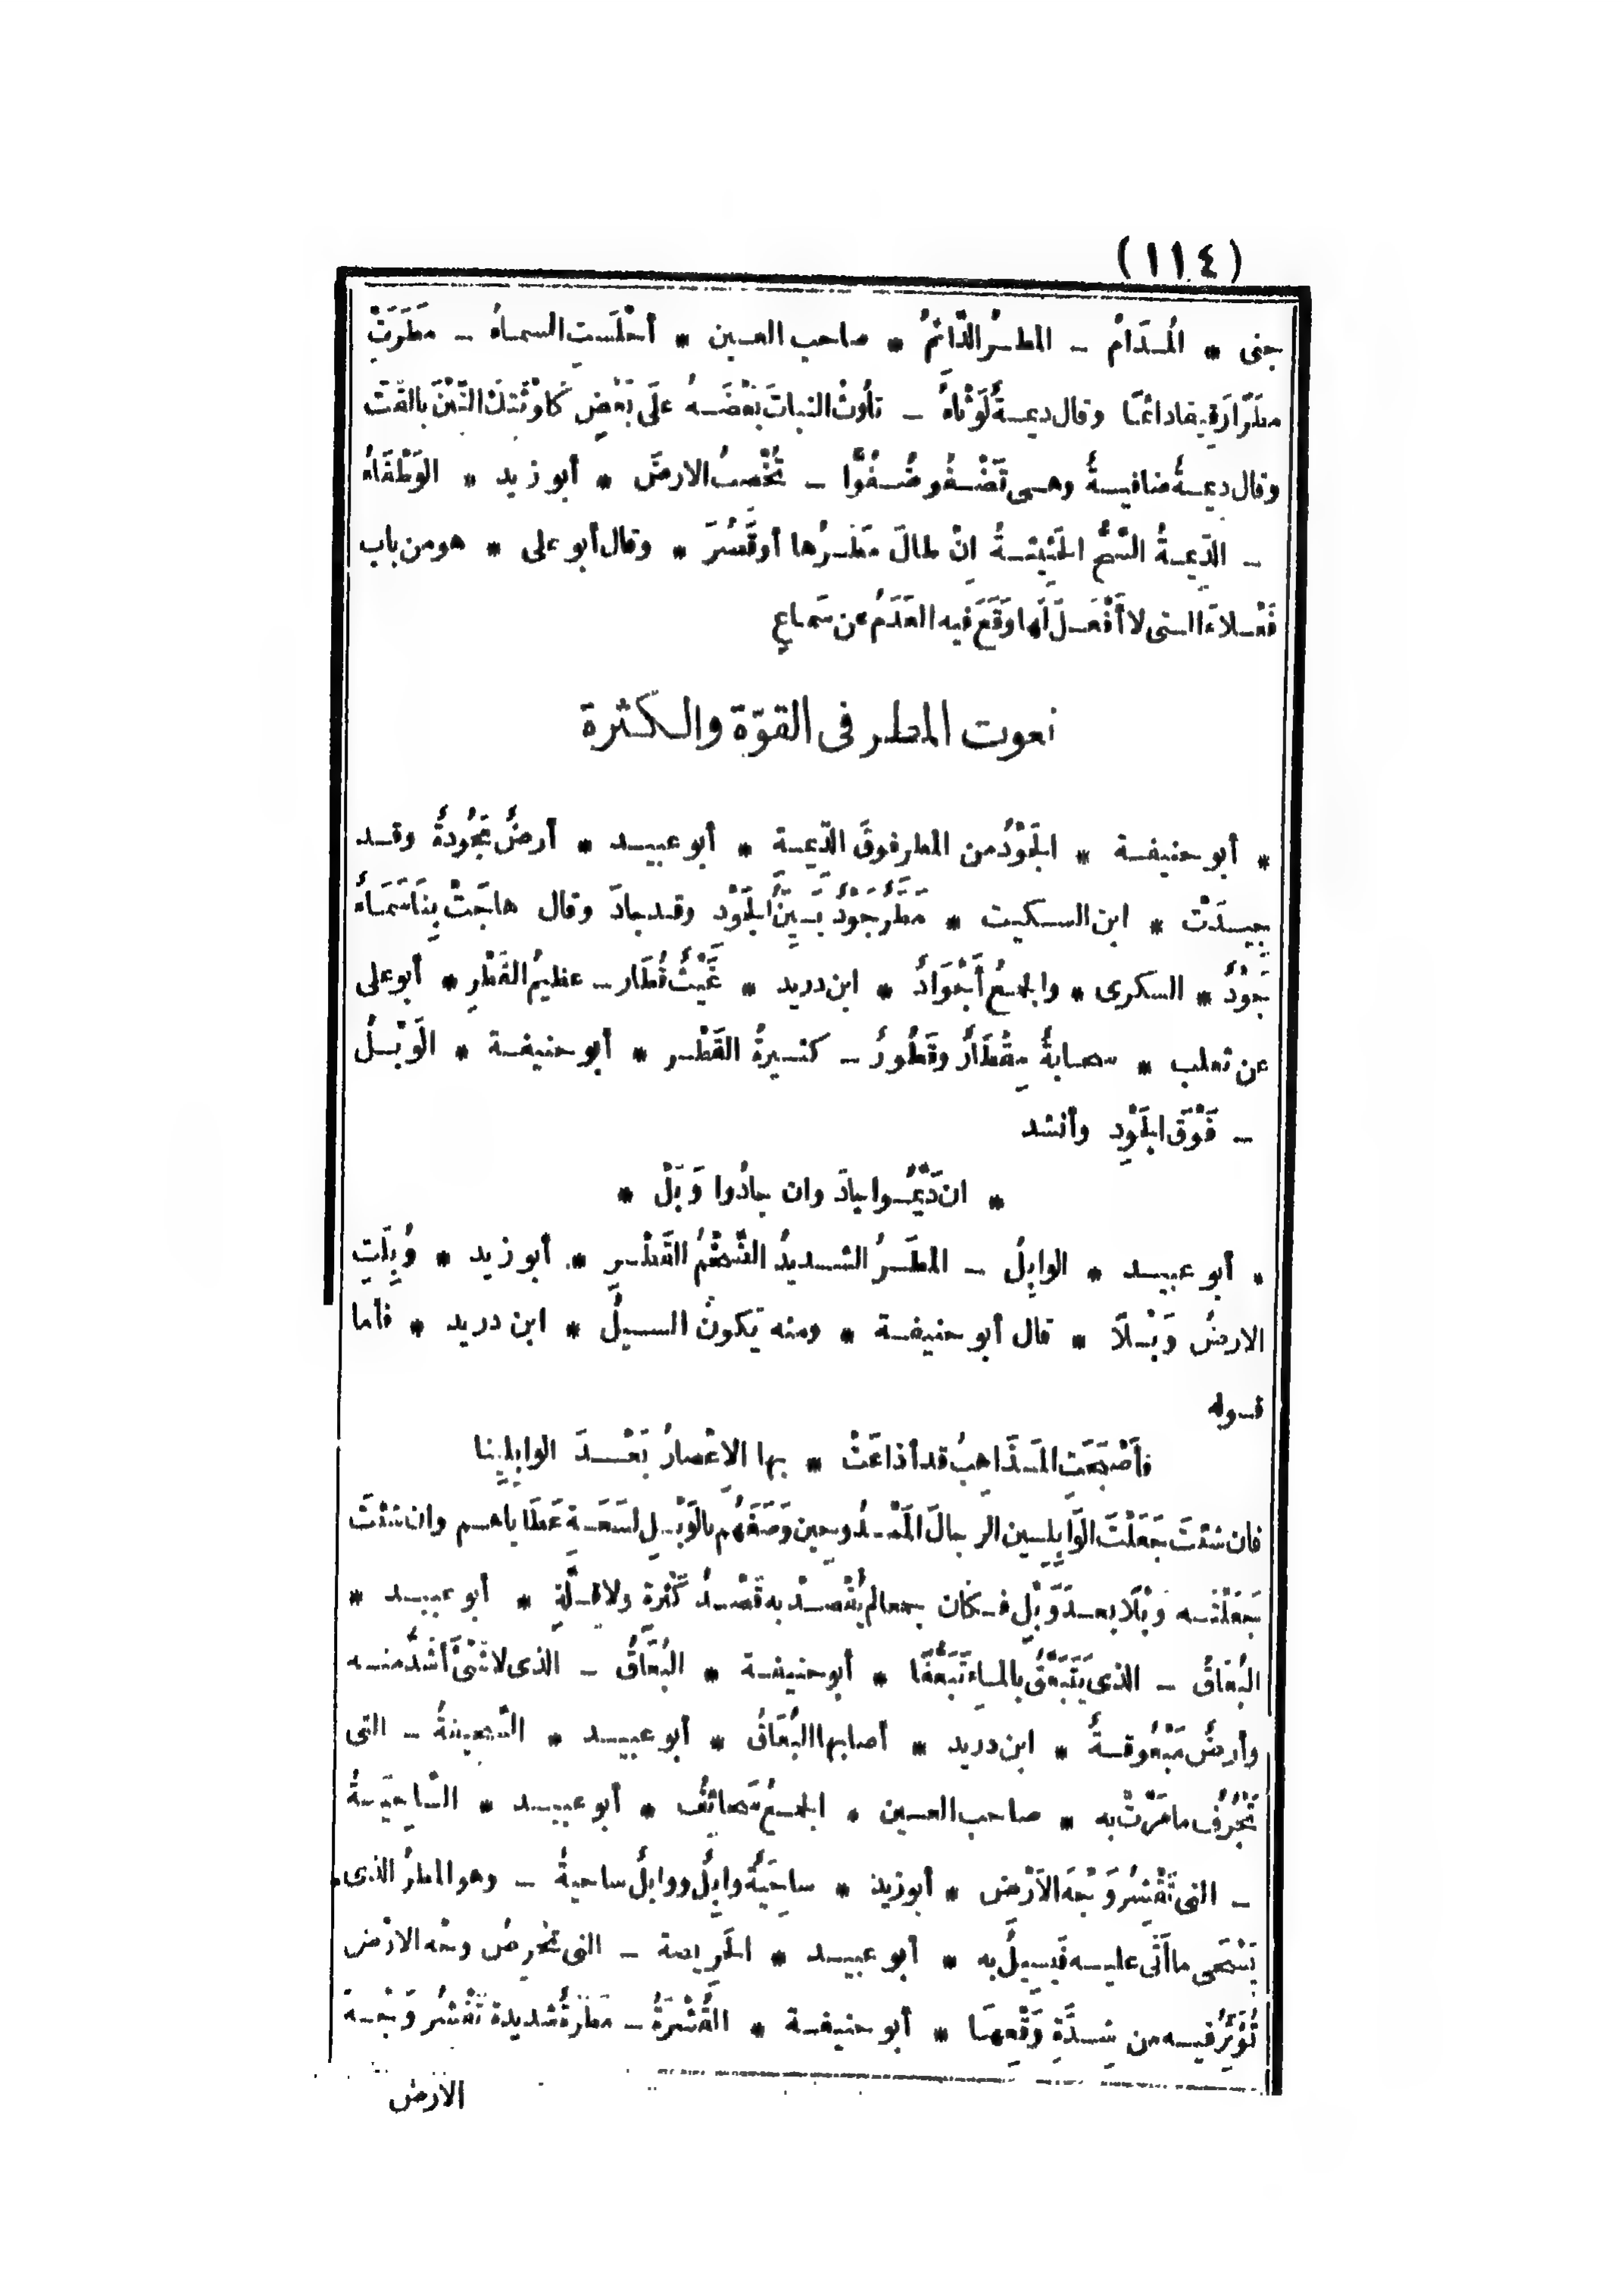 (١١٤)
جنى * المُدَامُ - المطرُ الدَّائمُ * صاحب العين * أحْلَسَتِ السماءُ - مَطَرَتْ
مطَرًا رَقِيقا دائمًا وقال ديمةٌ لَوْثَاءُ - تَلُوثُ النباتَ بَعْضَهُ علَى بَعْضٍ كَما تُلَوِّثُ التِّبْنَ بالقَتّ
وقال ديمةٌ ضافيةٌ وهى تَضْفُو ضُفُوًّا - تُخْصِبُ الارضَ * أبو زيد * الوَطْفَاءُ
- الدِّيمةُ السَّحُّ الحَثِيثةُ انْ طالَ مطَرُها أو قَصُرَ * وقال أبو على * هو من باب
فَعْلاءَ التى لا أَفْعَلَ لَها وَقَعَ فيه العَدَمُ عن سَماعٍ
نعوت المطر فى القوّة والكثرة
* أبو حنيفة * الجَوْدُ من المطر فوقَ الدّيمة * أبو عبيد * أرضٌ مَجُودةٌ وقد
جِيدَتْ * ابن السكيت * مَطَرٌ جَوْدٌ بَيِّنُ الجَوْد وقد جادَ وقال هاجَتْ بِنَا سَمَاءٌ
جَوْدٌ * السكرى * والجمعُ أَجْوَادٌ * ابن دريد * غَيْثٌ قُطَار - عظيمُ القَطْرِ * أبو على
عن ثعلب * سحابةٌ مِقْطَارٌ وقَطُورٌ - كثيرةُ القَطْر * أبو حنيفة * الوَبْلُ
- فَوْقَ الجَوْدِ وأنشد
* ان دَيَّمُوا جادَ وان جادُوا وَبَلْ *
* أبو عبيد * الوابِلُ - المطَرُ الشديدُ الضَّخْمُ القَطْرِ * أبو زيد * وُبِلَتِ
الارضُ وَبْلًا * قال أبو حنيفة * ومنه يَكونُ السيلُ * ابن دريد * فأما
قوله
فأَصْبَحَتِ المَذَاهِبُ قد أذاعَتْ * بها الاعْصارُ بَعْدَ الوابِلِينا
فان شئتَ جَعَلْتَ الوَابِلِين الرجالَ المَمْدُوحِين وَصَفَهُم بالوَبْلِ لسَعَةِ عَطَاياهم وان شئْتَ
جَعَلْتَه وَبْلًا بعدَ وَبْل فكان جمعا لم يُقْصَدْ به قَصْدُ كَثْرة ولا قلَّةٍ * أبو عبيد *
البُعَاقُ - الذى يَتَبَعَّقُ بالماءِ تَبَعُّقًا * أبو حنيفة * البُعَّاقُ - الذى لا شَىْءَ أشَدُّ منه
وأرضٌ مَبْعُوقةٌ * ابن دريد * أصابها البُعَاقُ * أبو عبيد * السَّحِيفةُ - التى
تَجْرُفُ ما مَرَّتْ به * صاحب العين * الجمعُ سَحائِفُ * أبو عبيد * السَّاحِيَةُ
- التى تَقْشِرُ وَجْهَ الأَرْض * أبو زيد * ساحِيَةٌ وابِلٌ ووابلٌ ساحيةٌ - وهو المطرُ الذى
يَسْحَى ما أَتَى عليه فَيَسِيلُ به * أبو عبيد * الحَرِيصة - التى تَحْرِصُ وجْه الارْض
تُؤَثِّرُ فيه من شِدَّةِ وَقْعِهَا * أبو حنيفة * القُشْرَةُ - مَطْرةٌ شديدة تَقْشُر وَجْهَ
الارض